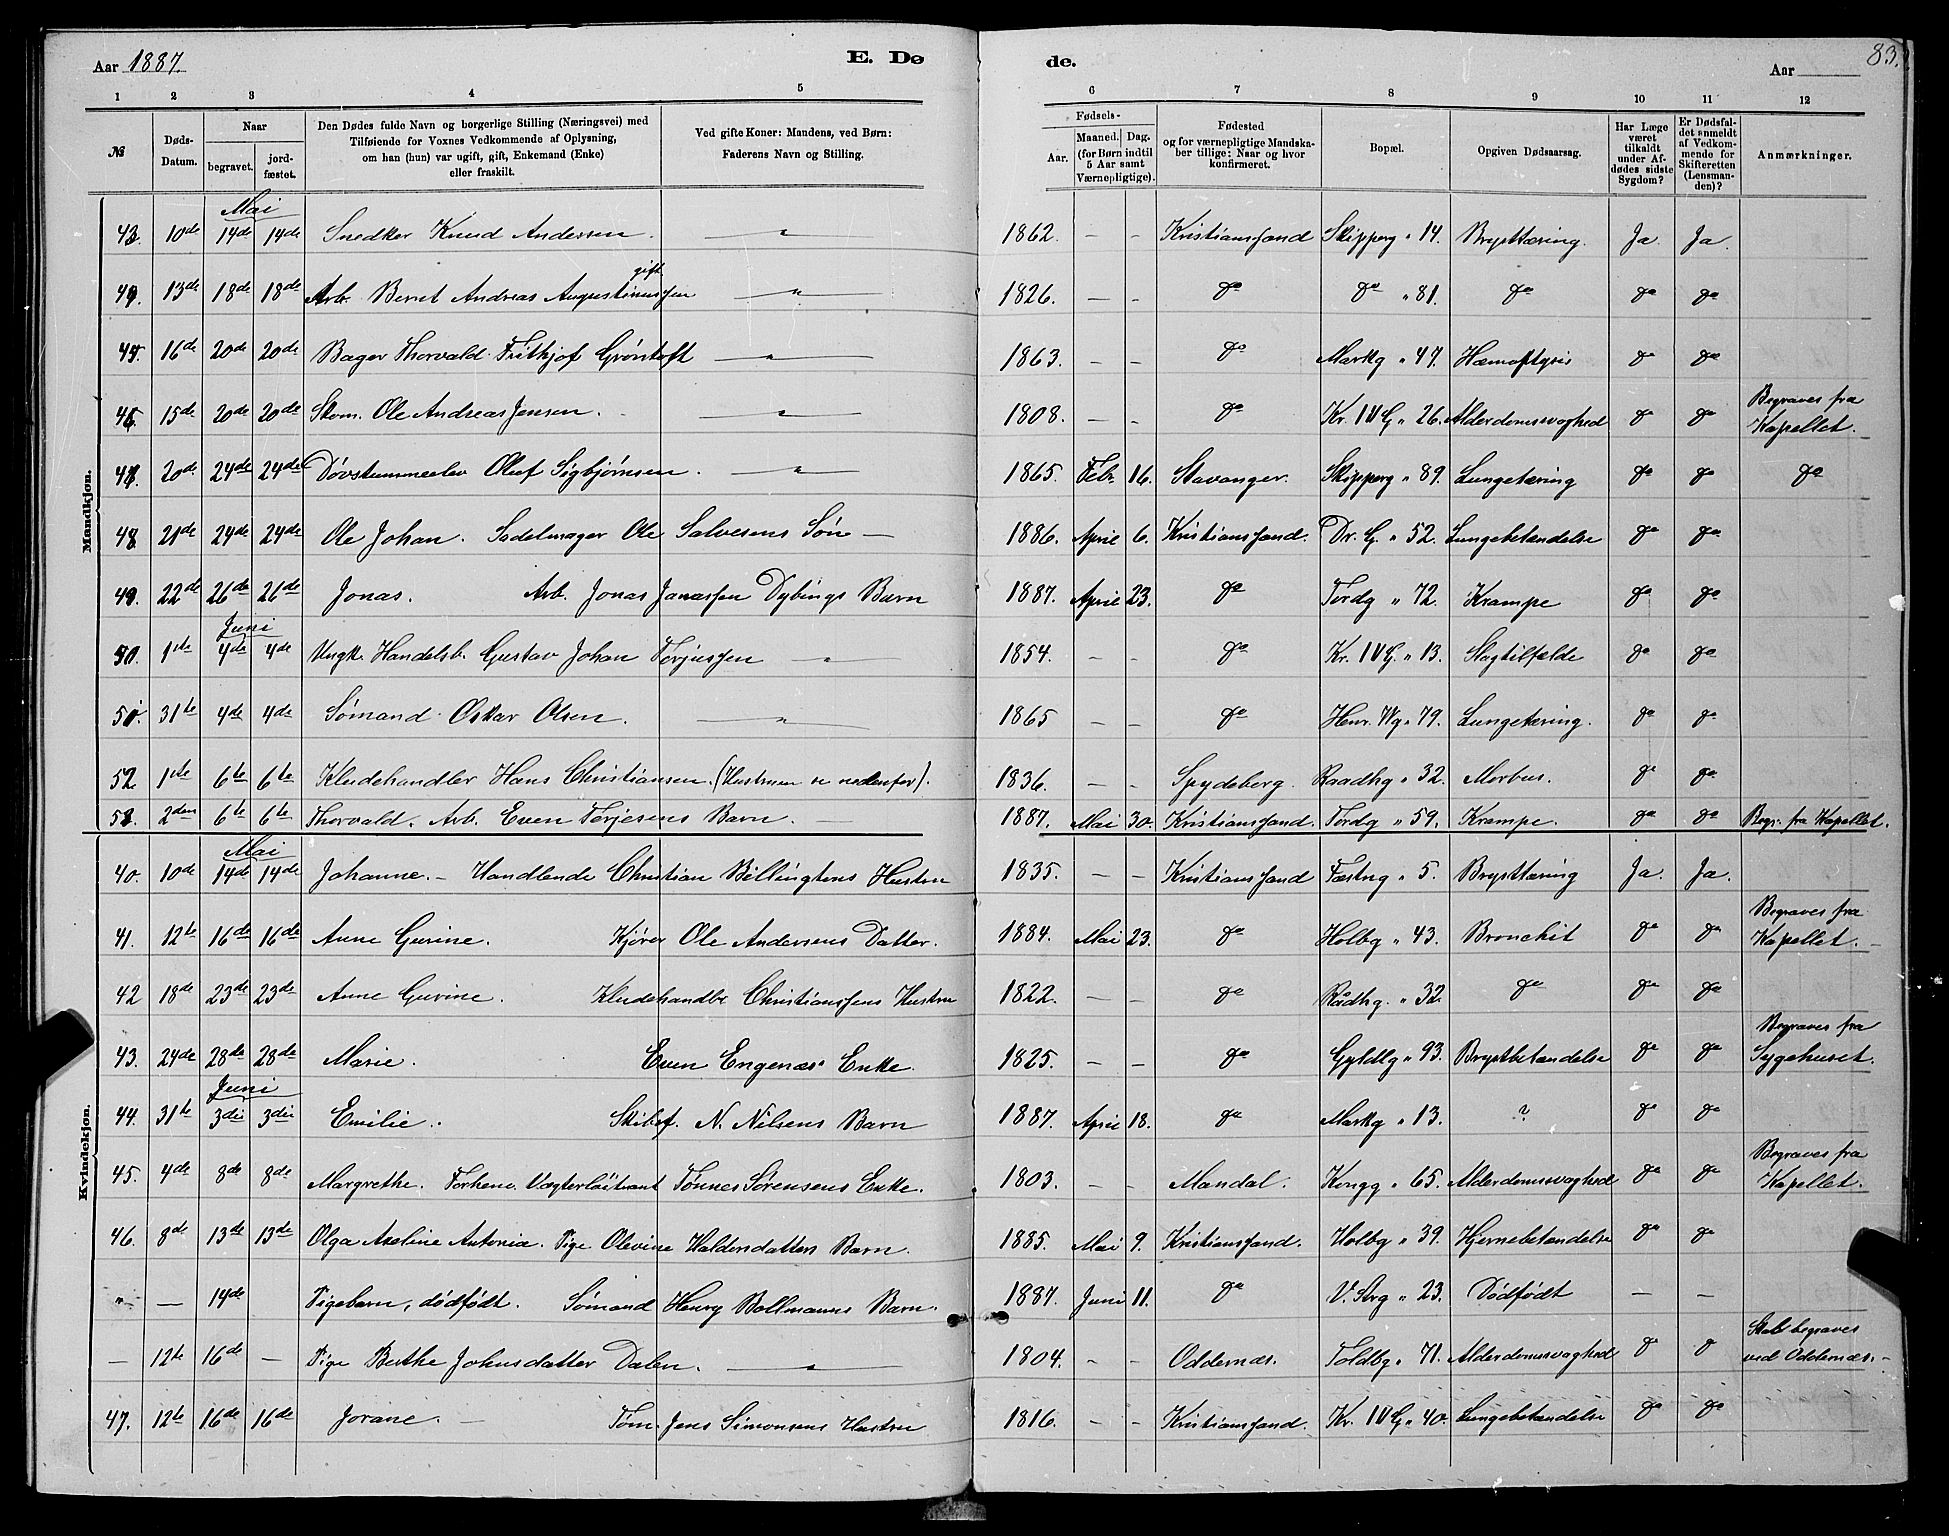 Aar 1887. E. Dø de. Aar 83.
1 2 3 4 5 6 7 8 9 10 11 12
№ Døds-Datum. Naar begravet. jordfæstet. Den Dødes fulde Navn og borgerlige Stilling (Næringsvei) med Tilføiende for Voxnes Vedkommende af Oplysning, om han (hun) var ugift, gift, Enkemand (Enke) eller fraskilt. Ved gifte Koner: Mandens, ved Børn: Faderens Navn og Stilling. Fødsels- Aar. Maaned. Dag. (for Børn indtil 5 Aar samt Værnepligtige). Fødested og for værnepligtige Mandskaber tillige: Naar og hvor konfirmeret. Bopæl. Opgiven Dødsaarsag. Har Læge været tilkaldt under Afdødes sidste Sygdom? Er Dødsfaldet anmeldt af Vedkommende for Skifteretten (Lensmanden)? Anmærkninger.
Mandkjøn.
Mai
43. 10de 14de 14de Snedker Knud Andersen. — " — 1862. - - Kristianssand Skipperg " 14. Brysttæring. Ja. Ja.
44. 13de 18de 18de Arb. Bernt Andreas Augustinussen gift. — " — 1826. — - do do " 81. do do do
45. 16de 20de 20de Bager Thorvald Frithjof Grøntoft — " — 1863. — - do Markg " 47. Hæmoftysis do do
46. 15de 20de 20de Skom. Ole Andreas Jensen. — " — 1808. - - do Kr. IV G " 26. Alderdomssvaghed do do Begraves fra Kapellet.
47. 20de 24de 24de Døvstummeelev Oluf Sigbjørnsen. — " — 1865. Febr. 16. Stavanger. Skipperg " 89. Lungetæring do do do
48. 21de 24de 24de Ole Johan. Sadelmager Ole Salvesens Søn — 1886. April 6. Kristianssand. Dr. G. " 52. Lungebetændelse do do
49. 22de 26de 26de Jonas. Arb. Jonas Jonassen Dybings Barn 1887. April 23. do Tordg " 72. Krampe do do
Juni
50. 1ste 4de 4de Ungk. Handelsb. Gustav Johan Terjussen " 1854. - - do Kr. IV G. " 13. Slagtilfælde do do
51. 31te 4de 4de Sømand Oskar Olsen. — " — 1865 - - do Henr. Wg " 79. Lungetæring. do do
52. 1ste 6te 6te Kludehandler Hans Christiansen. (Hustruen se nedenfor). 1836. — - Spydeberg. Raadhg " 32. Morbus. do do
53. 2den 6te 6te Thorvald. Arb. Even Terjesens Barn. — 1887. Mai 30. Kristianssand. Tordg " 59. Krampe. do do Begr. fra Kapellet.
Kvindekjøn.
Mai
40. 10de 14de 14de Johanne. — Handlende Christian Billingtons Hustru 1835. — - Kristianssand Fæstng " 5. Brysttæring Ja. Ja.
41. 12te 16de 16de Anne Gurine. Kjører Ole Andersens Datter. 1884. Mai 23. do Holbg " 43. Bronchit do do Begraves fra Kapellet. —
42 18de 23de 23de Anne Gurine. Kludehandler Christianssens Hustru 1822. — - do Rådhg. " 32. do do do
43. 24de 28de 28de Marie. Even Engenæs' Enke. 1825. — — do Gyldlg " 93. Brystbetændelse do do Begraves fra Sygehuset.
Juni
44. 31te 3die 3die Emilie. Skibsf. N. Nilsens Barn 1887. April 18. do Markg " 13. ? do do
45. 4de 8de 8de Margrethe. Forhenv. Vægterløitnant Tønnes Sørensens Enke. 1803. - - Mandal. Kongg " 65. Alderdomssvaghed do do Begraves fra Kapellet.
46. 8de 13de 13de Olga Axeline Antonia. Pige Olevine Haldorsdatters Barn. 1885. Mai 9. Kristianssand. Holbg " 39. Hjernebetændelse do do
" — 14de Pigebarn, dødfødt. Sømand Henry Bollmanns Barn. 1887. Juni 11. do V. Strg " 23. Dødfødt — —
— 12te 16de — Pige Berthe Johnsdatter Dalen. — " — 1804. - - Oddernæs. Toldbg " 71. Alderdomssvaghed do do Skal begraves ved Oddernæs. —
47. 12te 16de 16de Jorane. — Tøm. Jens Simonsens Hustru 1816. - - Kristianssand. Kr. IV G " 40. Lungebetændelse do do